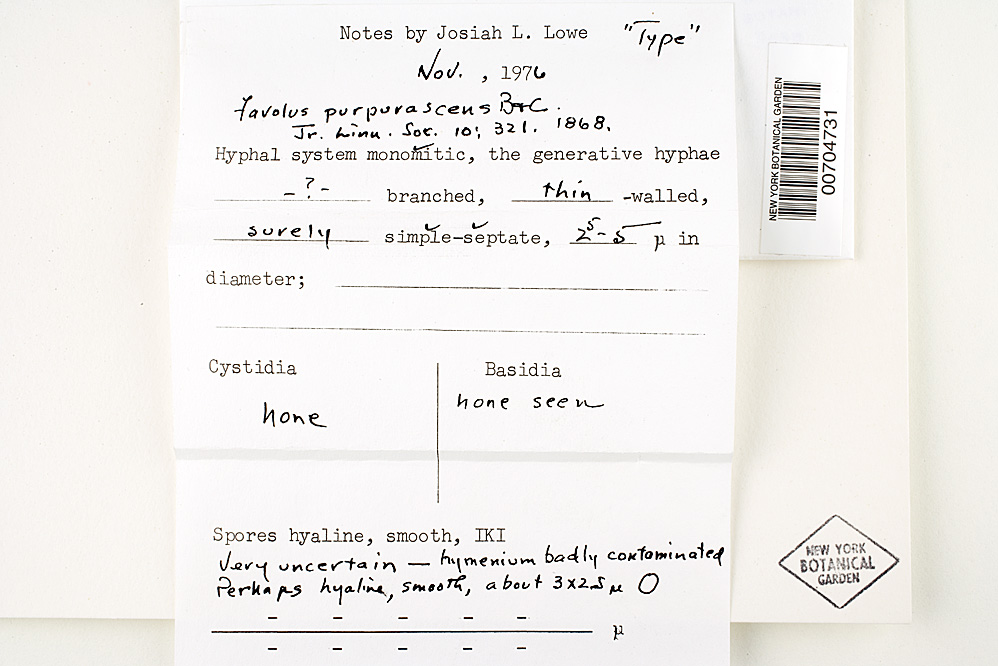 Notes by Josiah L. Lowe "Type"
Nov. , 1976
Favolus purpurascens B+C.
Jr. Linn. Soc. 10; 321. 1868.
Hyphal system monomitic, the generative hyphae
-?- branched, thin -walled,
surely simple-septate, μ in
diameter;
Cystidia
none
Basidia
none seen
Spores hyaline, smooth, IKI
Very uncertain — hymenium badly contaminated
Perhaps hyaline, smooth, about 3x2.5 μ
- - - - -
μ
- - - - -
NEW YORK BOTANICAL GARDEN
00704731
NEW YORK
BOTANICAL
GARDEN